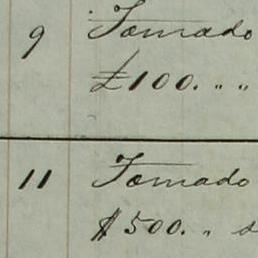 9 Tornado
£100. " "
11 Tornado
$500. "